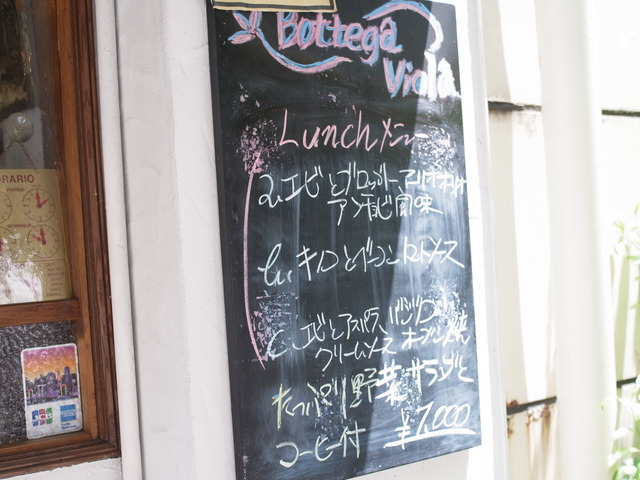 Bottega
Viola
Lunchメニュー
a. エビとブロッコリー、アーリオオーリオ
アンチョビ風味
b. キノコとベーコン トマトソース
c. エビとアスパラ、
クリームソース オーブン焼
たっぷり野菜サラダと
コーヒー付 ¥1,000
ORARIO
JCB